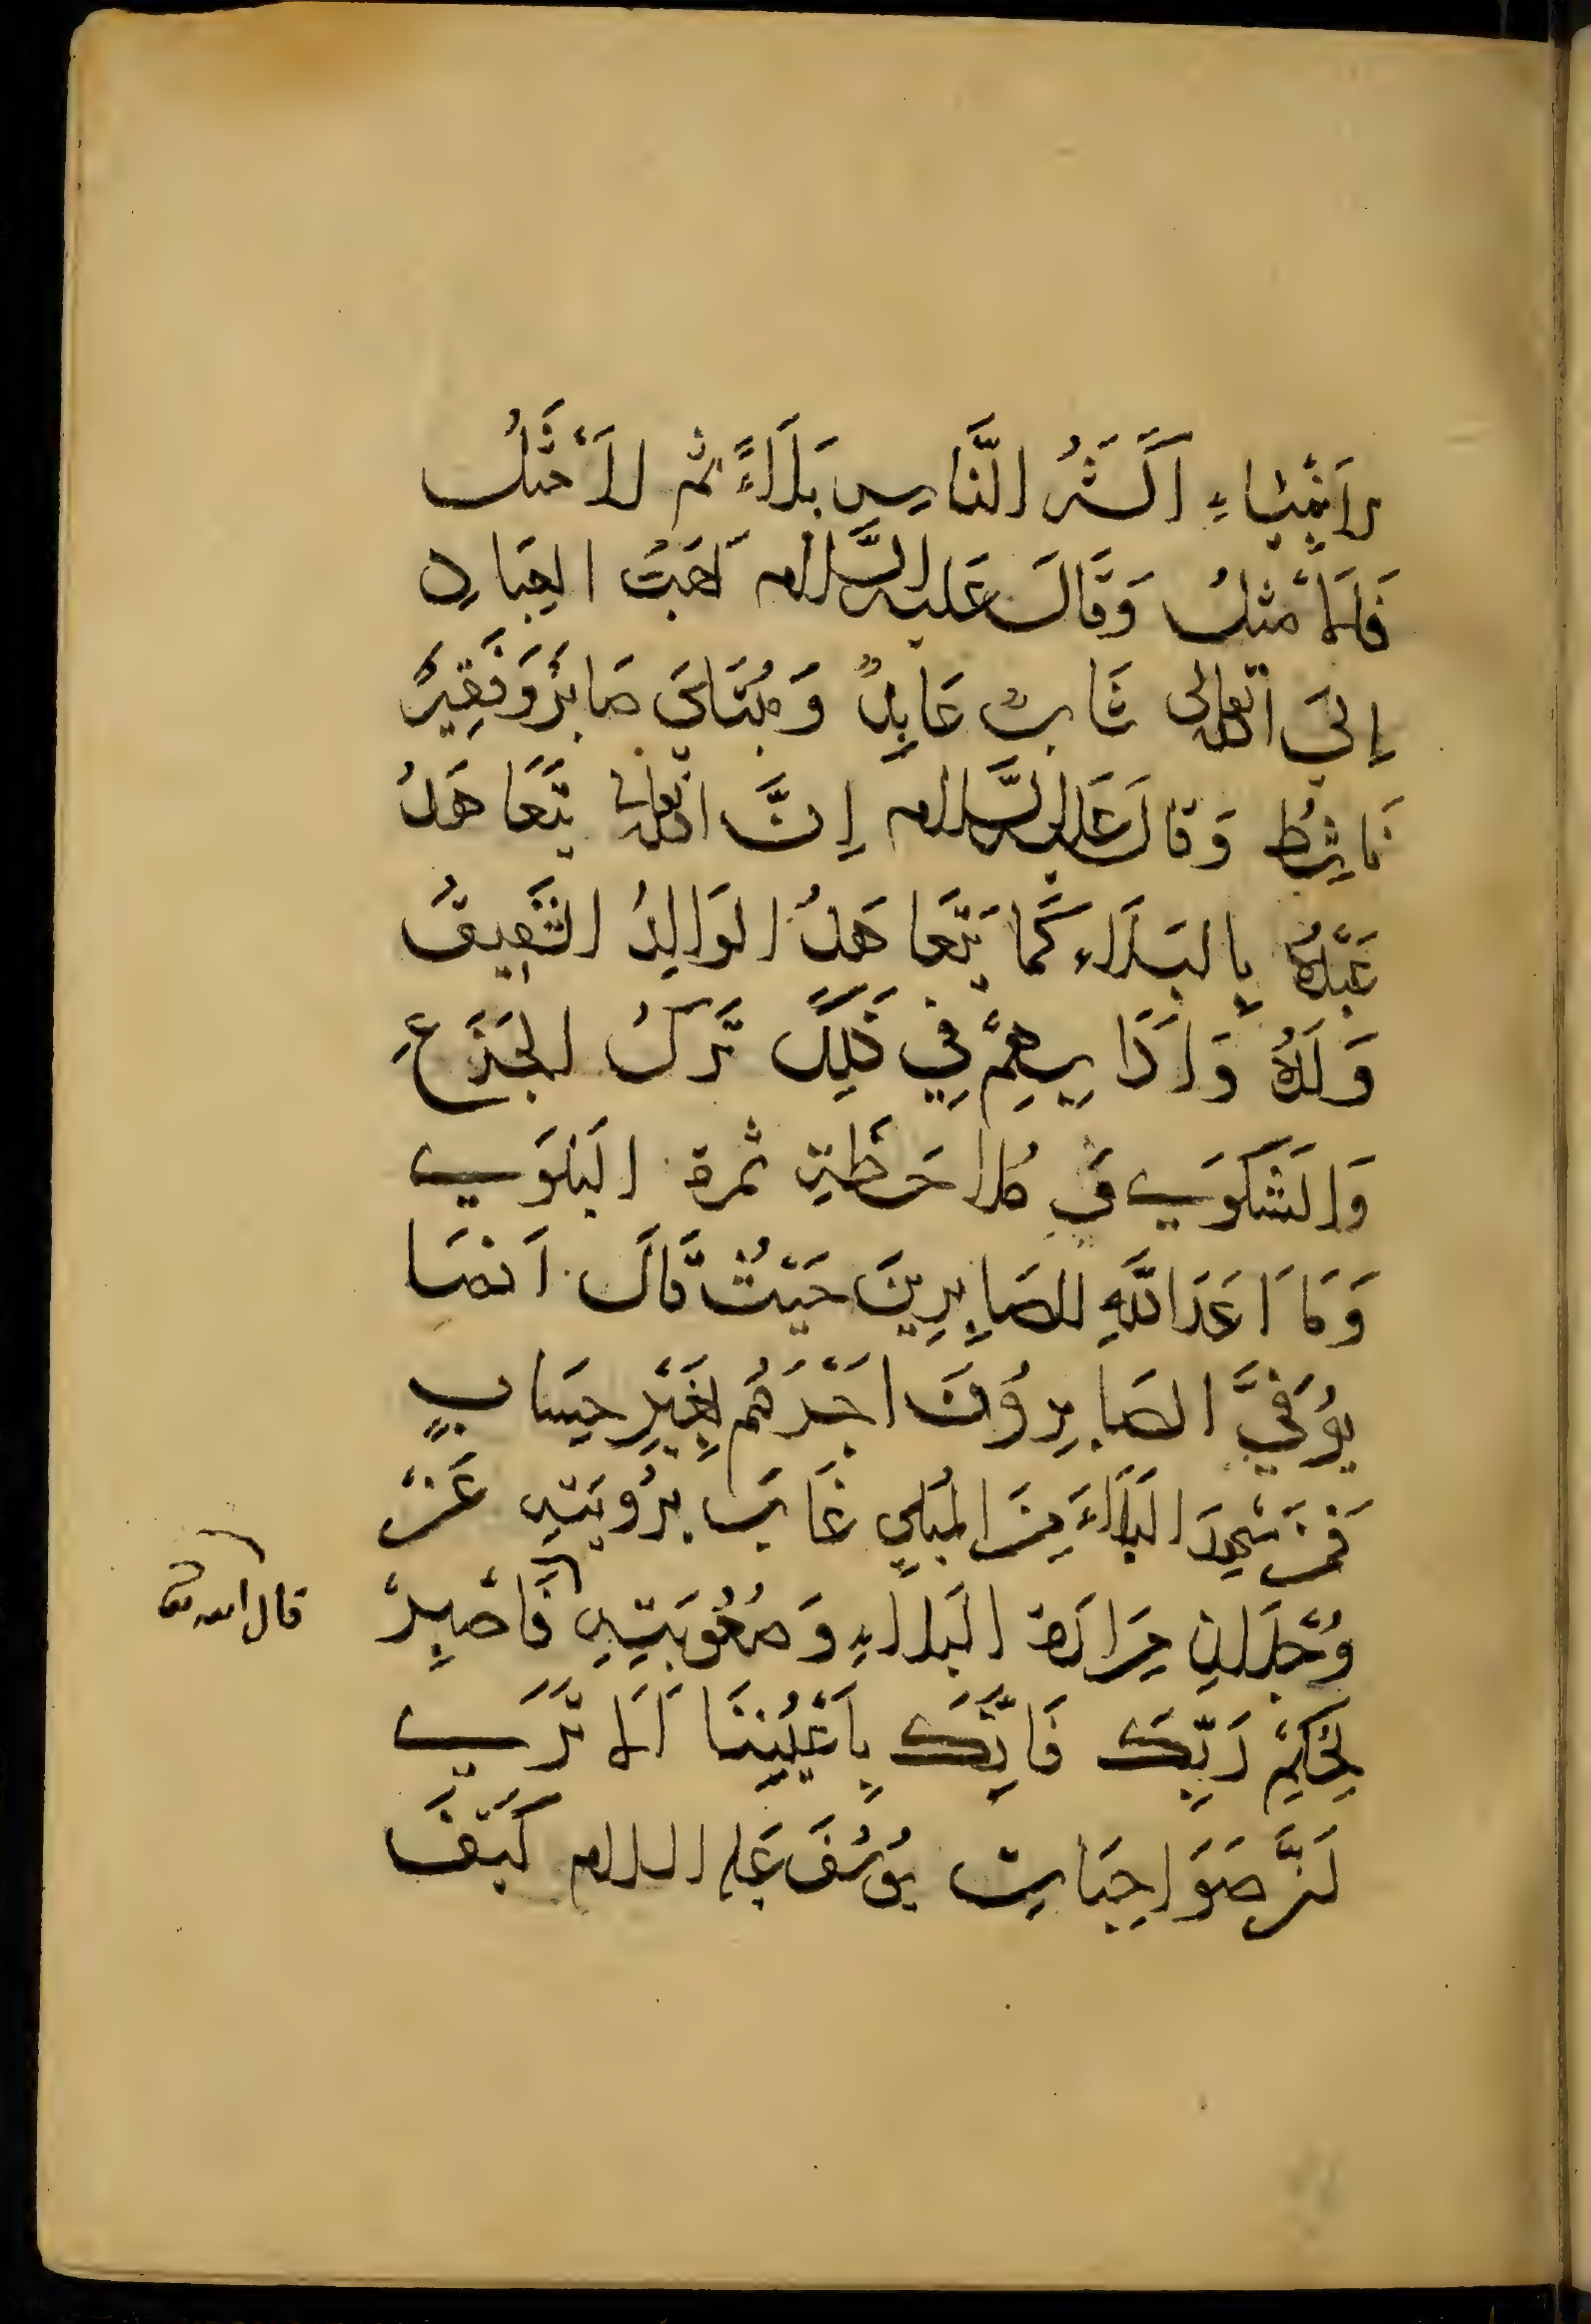 لانبياء اَكَثَرُ النَّاسِ بَلَاءً ثم الَأمْثَلُ
فَالَامْثلُ وَقَالَ عَليه السَّلام اَحَبُّ العِبَادِ
إِلىَ اللّٰه تعالى شَابٌ عَابِدٌ وَمُبْتَلىَ صَابِرٌ وَفَقِيرٌ
نَاشِطٌ وَقالَ عَليه السَّلام إِنَّ اللّٰه تعالى يَتَعَاهَدُ
عَبْدَهُ بِالبَلَاءِ كَمَا يَتَعَاهَدُ الوَالِدُ الشَفِيقُ
وَلَدَهُ وَاَدَابِهِمْ فِي ذَلِكَ تَرَكُ الجَزَعِ
وَالشَكوَي فيِ مُلَاحَظَةِ ثمرة البَلوَي
وَمَا اَعَدَ اللَّهِ للصَابِرِينَ حَيْثُ قَالَ اِنمَا
يُوَفيَّ الصَابِرُونَ اَجْرَهُم بِغَيْرِ حِسَابٍ
فَمَنْ شَهِدَ البَلَاءَ مِنَ المُبلي غَابَ بِرُويَتِهِ عَنْ
وُجْدَانِ مَرَارَة البَلَاءِ وَصُعُوبَتِهِ فَاصْبِرْ
قال الله تعا
لِحُكمِ رَبِّكَ فَاِنَّكَ بِاَعْيُنِنَا اَلَا تَرَي
اَنَّ صَوَاحِبَاتِ يوُسُفَ عليه السلام كَيْفَ